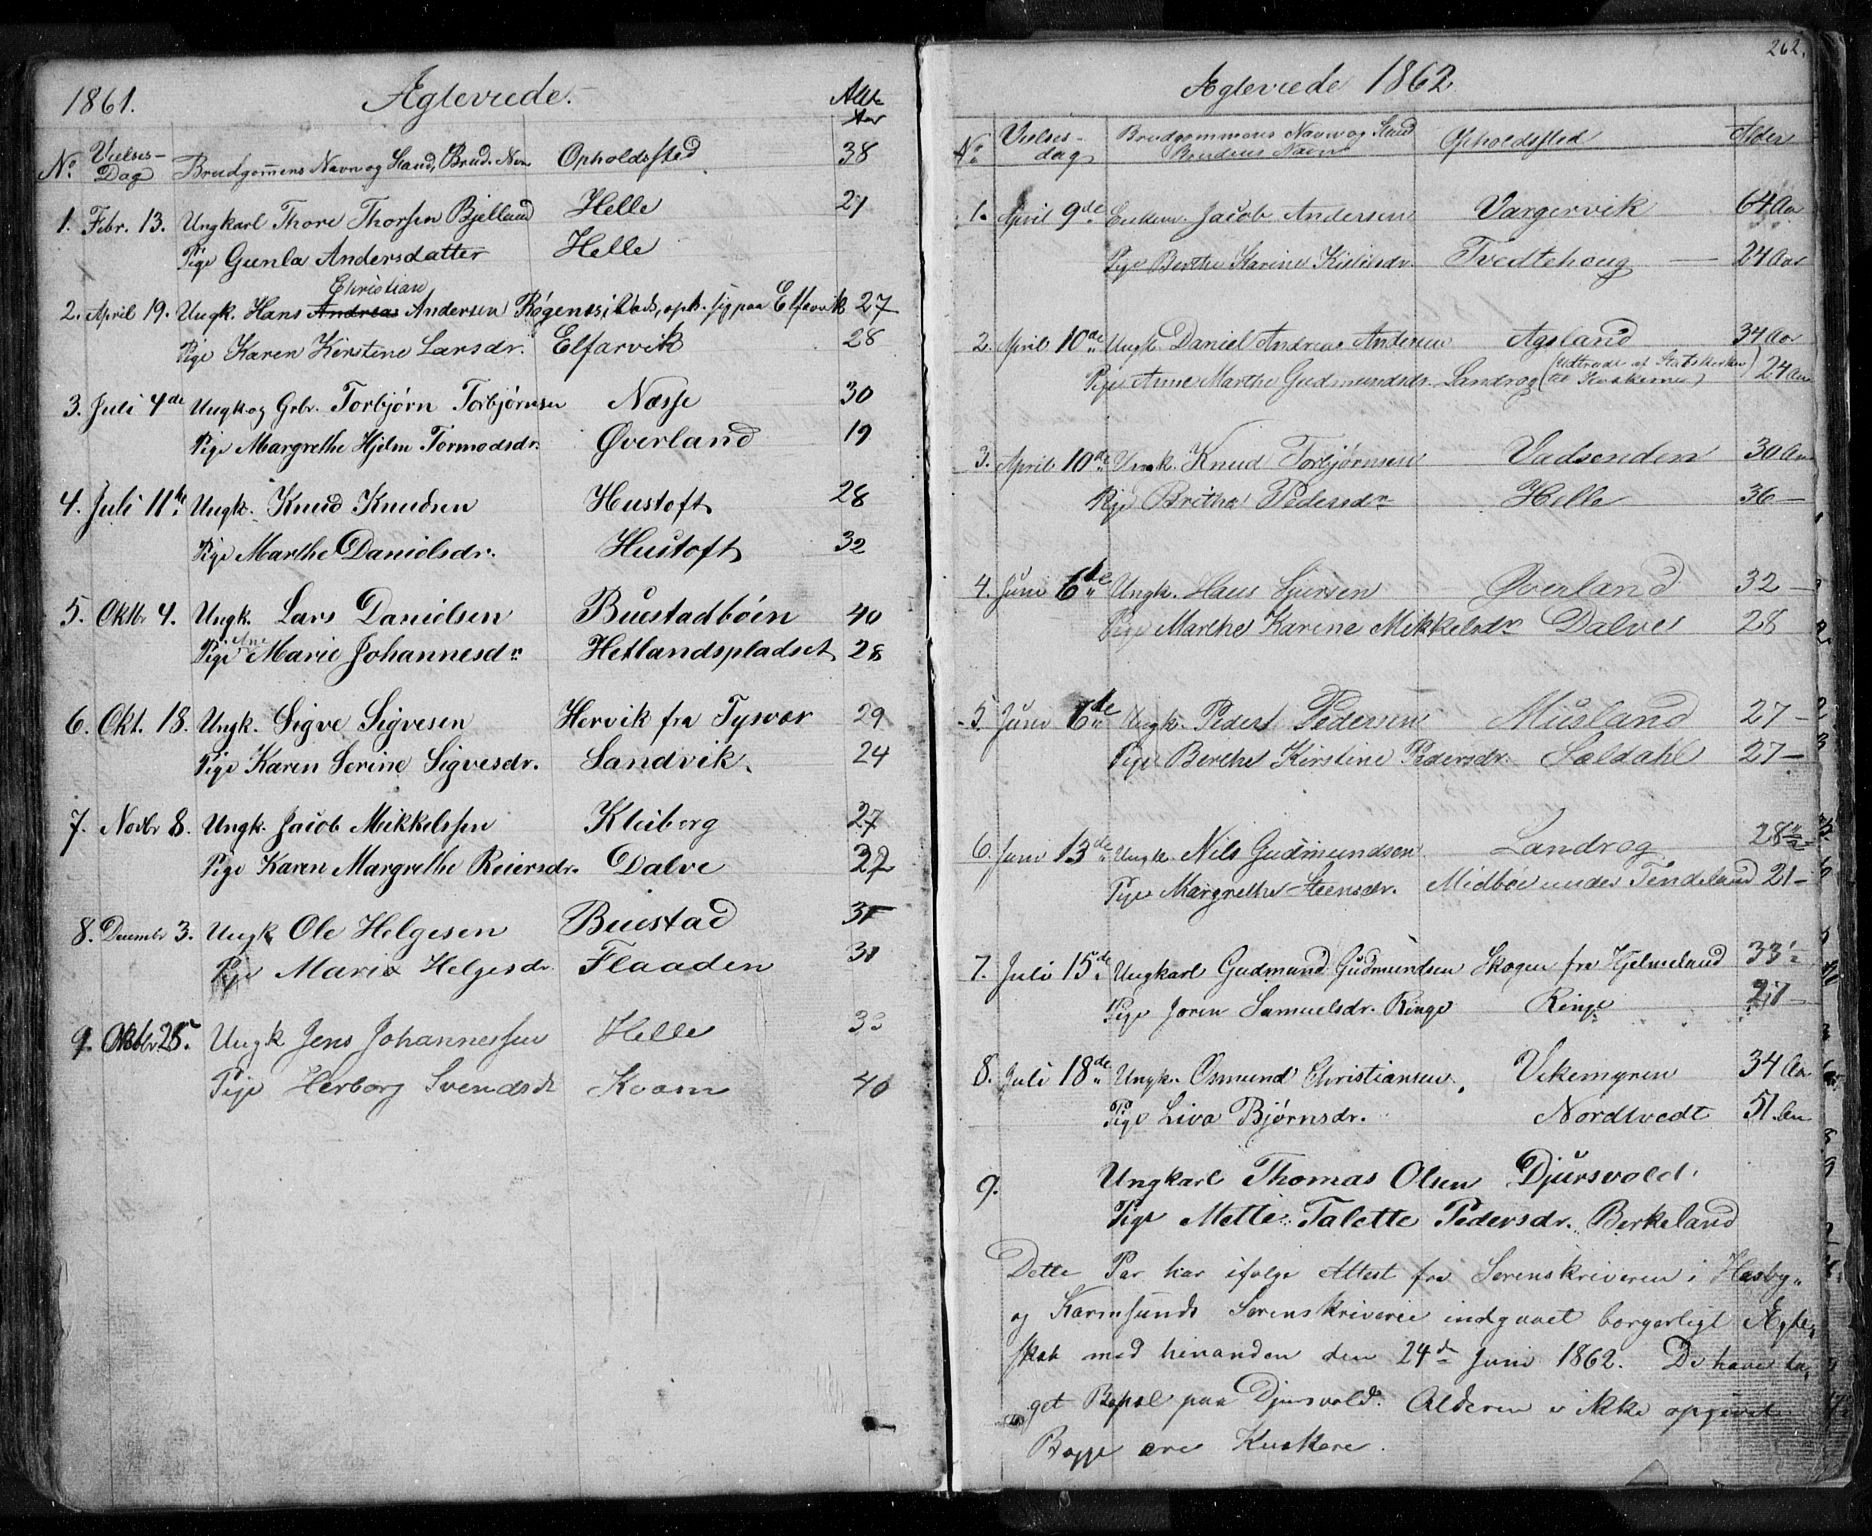 1861. Ægteviede. Alder
Aar
No. Vielses-Dag Brudgommens Navn og Stand, Brud. Navn Opholdssted 38
1. Febr. 13. Ungkarl Thore Thorsen Bjelland Helle 27
Pige Gunla Andersdatter Helle
Christian
2. April 19. Ungk. Hans Andreas Andersen Røgenes i Vads, oph. sig paa Elfarvik 27
Pige Karen Kirstine Larsdr. Elfarvik 28
3. Juli 4de Ungk og Grbr. Torbjørn Torbjørnsen Næsse 30
Pige Margrethe Hjelm Tormodsdr. Øverland 19
4. Juli 11te Ungk. Knud Knudsen Hustoft 28
Pige Marthe Danielsdr. Hustoft 32
5. Oktbr 4. Ungk. Lars Danielsen Buestadbøen 40
Pige Ane Marie Johannesdr Hetlandspladset 28
6. Okt. 18. Ungk. Sigve Sigvesen Hervik fra Tysvær 29
Pige Karen Serine Sigvesdr. Sandvik 24
7. Novbr 8. Ungk. Jacob Mikkelssen Kleiberg 27
Pige Karen Margrethe Reiersdr. Dalve 32
8. Decembr 3. Ungk Ole Helgesen Buestad 31
Pige Maria Helgesdr Flaaden 31
9. Oktbr 25. Ungk Jens Johannessen Helle 33
Pige Herborg Svendsdr Kvam 40
262.
Ægteviede 1862
No. Vielses-dag Brudgommens Navn og Stand Opholdssted Alder
Brudens Navn
1. April 9de Enkem. Jacob Andersen Vargervik 64 Aar
Pige Berthe Karine Killilsdr. Tvedtehoug 24 Aar
2. April 10de Ungk. Daniel Andreas Andersen Agsland 34 Aar
Pige Anne Marthe Gudmundsdr. Landrog (Udtraadt af Statskirken til Kvækerne) 24 Aar
3. April 10de Ungk. Knud Torbjørnsen Vadsenden 30 Aar
Pige Britha Pedersdr Helle 36 —
4. Juni 6te Ungk. Hans Sjursen Øverland 32 —
Pige Marthe Karine Mikkelsdr Dalve 28
5. Juni 6te Ungk. Peder Pedersen Musland 27 —
Pige Berthe Kirstine Pedersdr. Sældahl 27 —
6. Juni 13de Ungk. Nils Gudmundsen Landrog 28½
Pige Margrethe Steensdr. Midbøe under Tendeland 21 —
7. Juli 15de Ungkarl Gudmund Gudmundsen Skogen fra Hjelmeland 33½
Pige Joren Samuelsdr. Ringe Ringe 21 —
8. Juli 18de Ungk. Osmund Christiansen Vikemyren 34 Aar
Pige Liva Bjørnsdr. Nordtvedt 51 Aar
9. Ungkarl Thomas Olsen Djursvold
Pige Mette Talette Pedersdr. Berkeland
Dette Par har ifølge Attest fra Sorenskriveren i Hasby-
og Karmsunds Sorenskriverie indgaaet borgerligt Ægte-
skab med hinanden den 24de Juni 1862. De have ta-
get Bopæl paa Djursvold. Alderen er ikke opgivet.
Begge ere Kvækere.